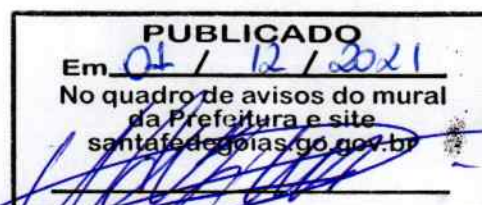 PUBLICADO
Em 01 / 12 / 2021
No quadro de avisos do mural
da Prefeitura e site
santafedegoias.go.gov.br